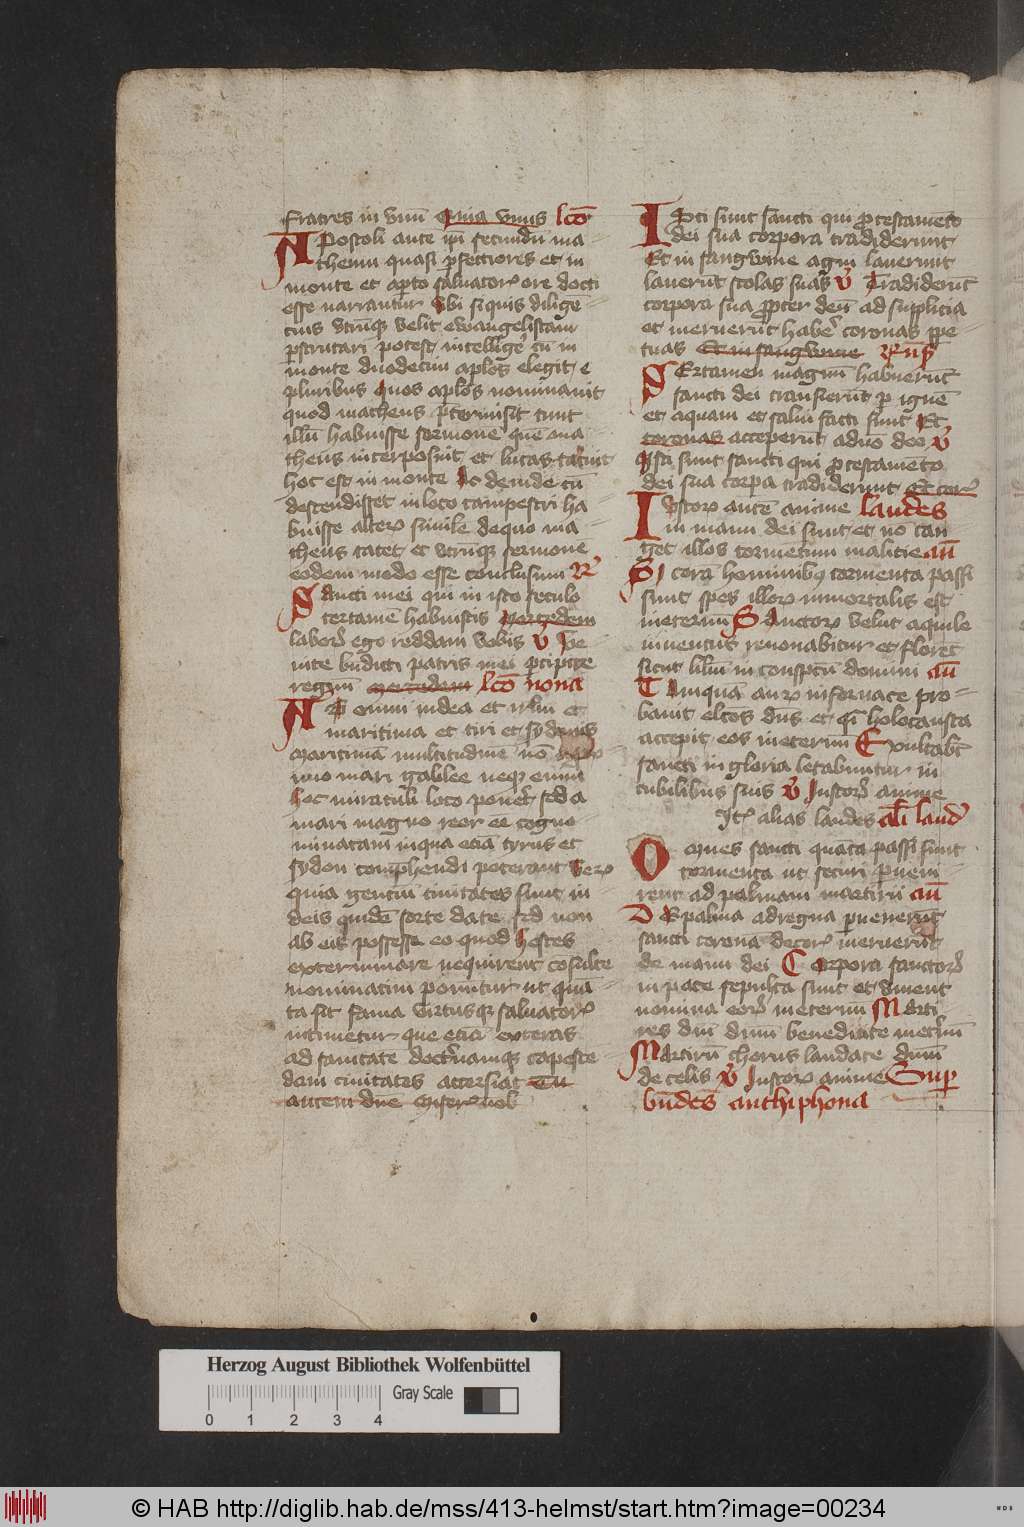 fratres in vnū Quia vnus lcō
Apostoli ante ip̄i secundū ma
theum quasi ꝑfectiores et in
monte et aꝑto saluatorꝭ ore docti
esse narrantur Vbi siquis dilige
cius vtrūqꝫ velit ewangelistam
ꝑscrutari potest intelligē cū in
monte duodecim aplōs elegit e
pluribus Quos aplōs nominauit
quod matheus p̄termisit tunc
illū habuisse sermonē quē ma
theus interposuit et lucas tacuit
hoc est in monte Ac deinde cū
descendisset in loco campestri ha
buisse alterꝭ simile de quo ma
theus tacet et vtrūqꝫ sermonē
eodem modo esse conclusum R̄
Sancti mei qui in isto seculo
certamē habuistis mercedem
laborꝭ ego reddam vobis v̄ Ve
nite bn̄dicti patris mei ꝑcipite
regnū mercedem lcō nona
Ad enim iudea et irlm̄ et
maritima et tiri et sydonis
Maritimā multitudine nō
imo mari galilee neqꝫ enim
hoc miraculi loco ponet̄ sed a
mari magno reor ee cogno
minatam inqua eciā tyrus et
sydon comprehendi poterant Verꝭ
quia gentiū ciuitates sunt in
deis quidē sorte date sed non
ab eis possesse eo quod hostes
exterminare nequirent consulte
nominatim ponūtur ut quā
ta sit fama virtusqꝫ saluatorꝭ
intimetur que eciā exteras
ad sanitatē doctrinamqꝫ capesce
dam ciuitates accersiat Tu
autem dn̄e Miserꝭ nob
Isti sunt sancti qui ꝓ testamēto
dei sua corpora tradiderunt
Et in sangwine agni lauerunt
lauerūt stolas suas v̄ Tradiderūt
corpora sua ꝓpter deū ad supplicia
et meruerūt habē coronas ꝑpe
tuas Et in sangwine R̄m̄
Certamen magnū habuerūt
sancti dei transierūt ꝑ ignē
et aquam et salui facti sunt Et
coronas acceperūt aduo deo v̄
Isti sunt sancti qui ꝓ testamēto
dei sua corꝑa tradiderunt Et corꝭ
Iustorꝭ autē anime laudes
in manu dei sunt et nō tan
get illos tormētum malicie an̄
Si corā hominibꝫ tormenta passi
sunt spes illorꝭ inmortalis est
ineternū Sanctorꝭ velut aquile
iuuentus renouabitur et florēt
sicut liliū in conspctū domini an̄
Tamquā aurꝭ infornace pro
bauit elctōs dn̄s et qī holocausta
accepit eos ineternū Exultabūt
sancti in gloria letabuntur in
cubilibus suis v̄ Iustorꝭ anime
Itꝭ alias laudes ali laud
Omnes sancti quāta passi sunt
tormenta ut securi ꝑueni
rent ad palmam martirii an̄
Cum palma ad regna ꝑuenerūt
sancti coronā decorꝭ meruerūt
de manu dei Corpora sanctorꝭ
in pace sepulta sunt et viuent
nomina eorꝭ ineternū Marti
res dn̄i dnm̄ benedicite inet̄nū
Martirū chorus laudate dnm̄
de celis v̄ Iustorꝭ anime Super
bn̄des anthiphona
Herzog August Bibliothek Wolfenbüttel
Gray Scale
0 1 2 3 4
© HAB http://diglib.hab.de/mss/413-helmst/start.htm?image=00234
WDB